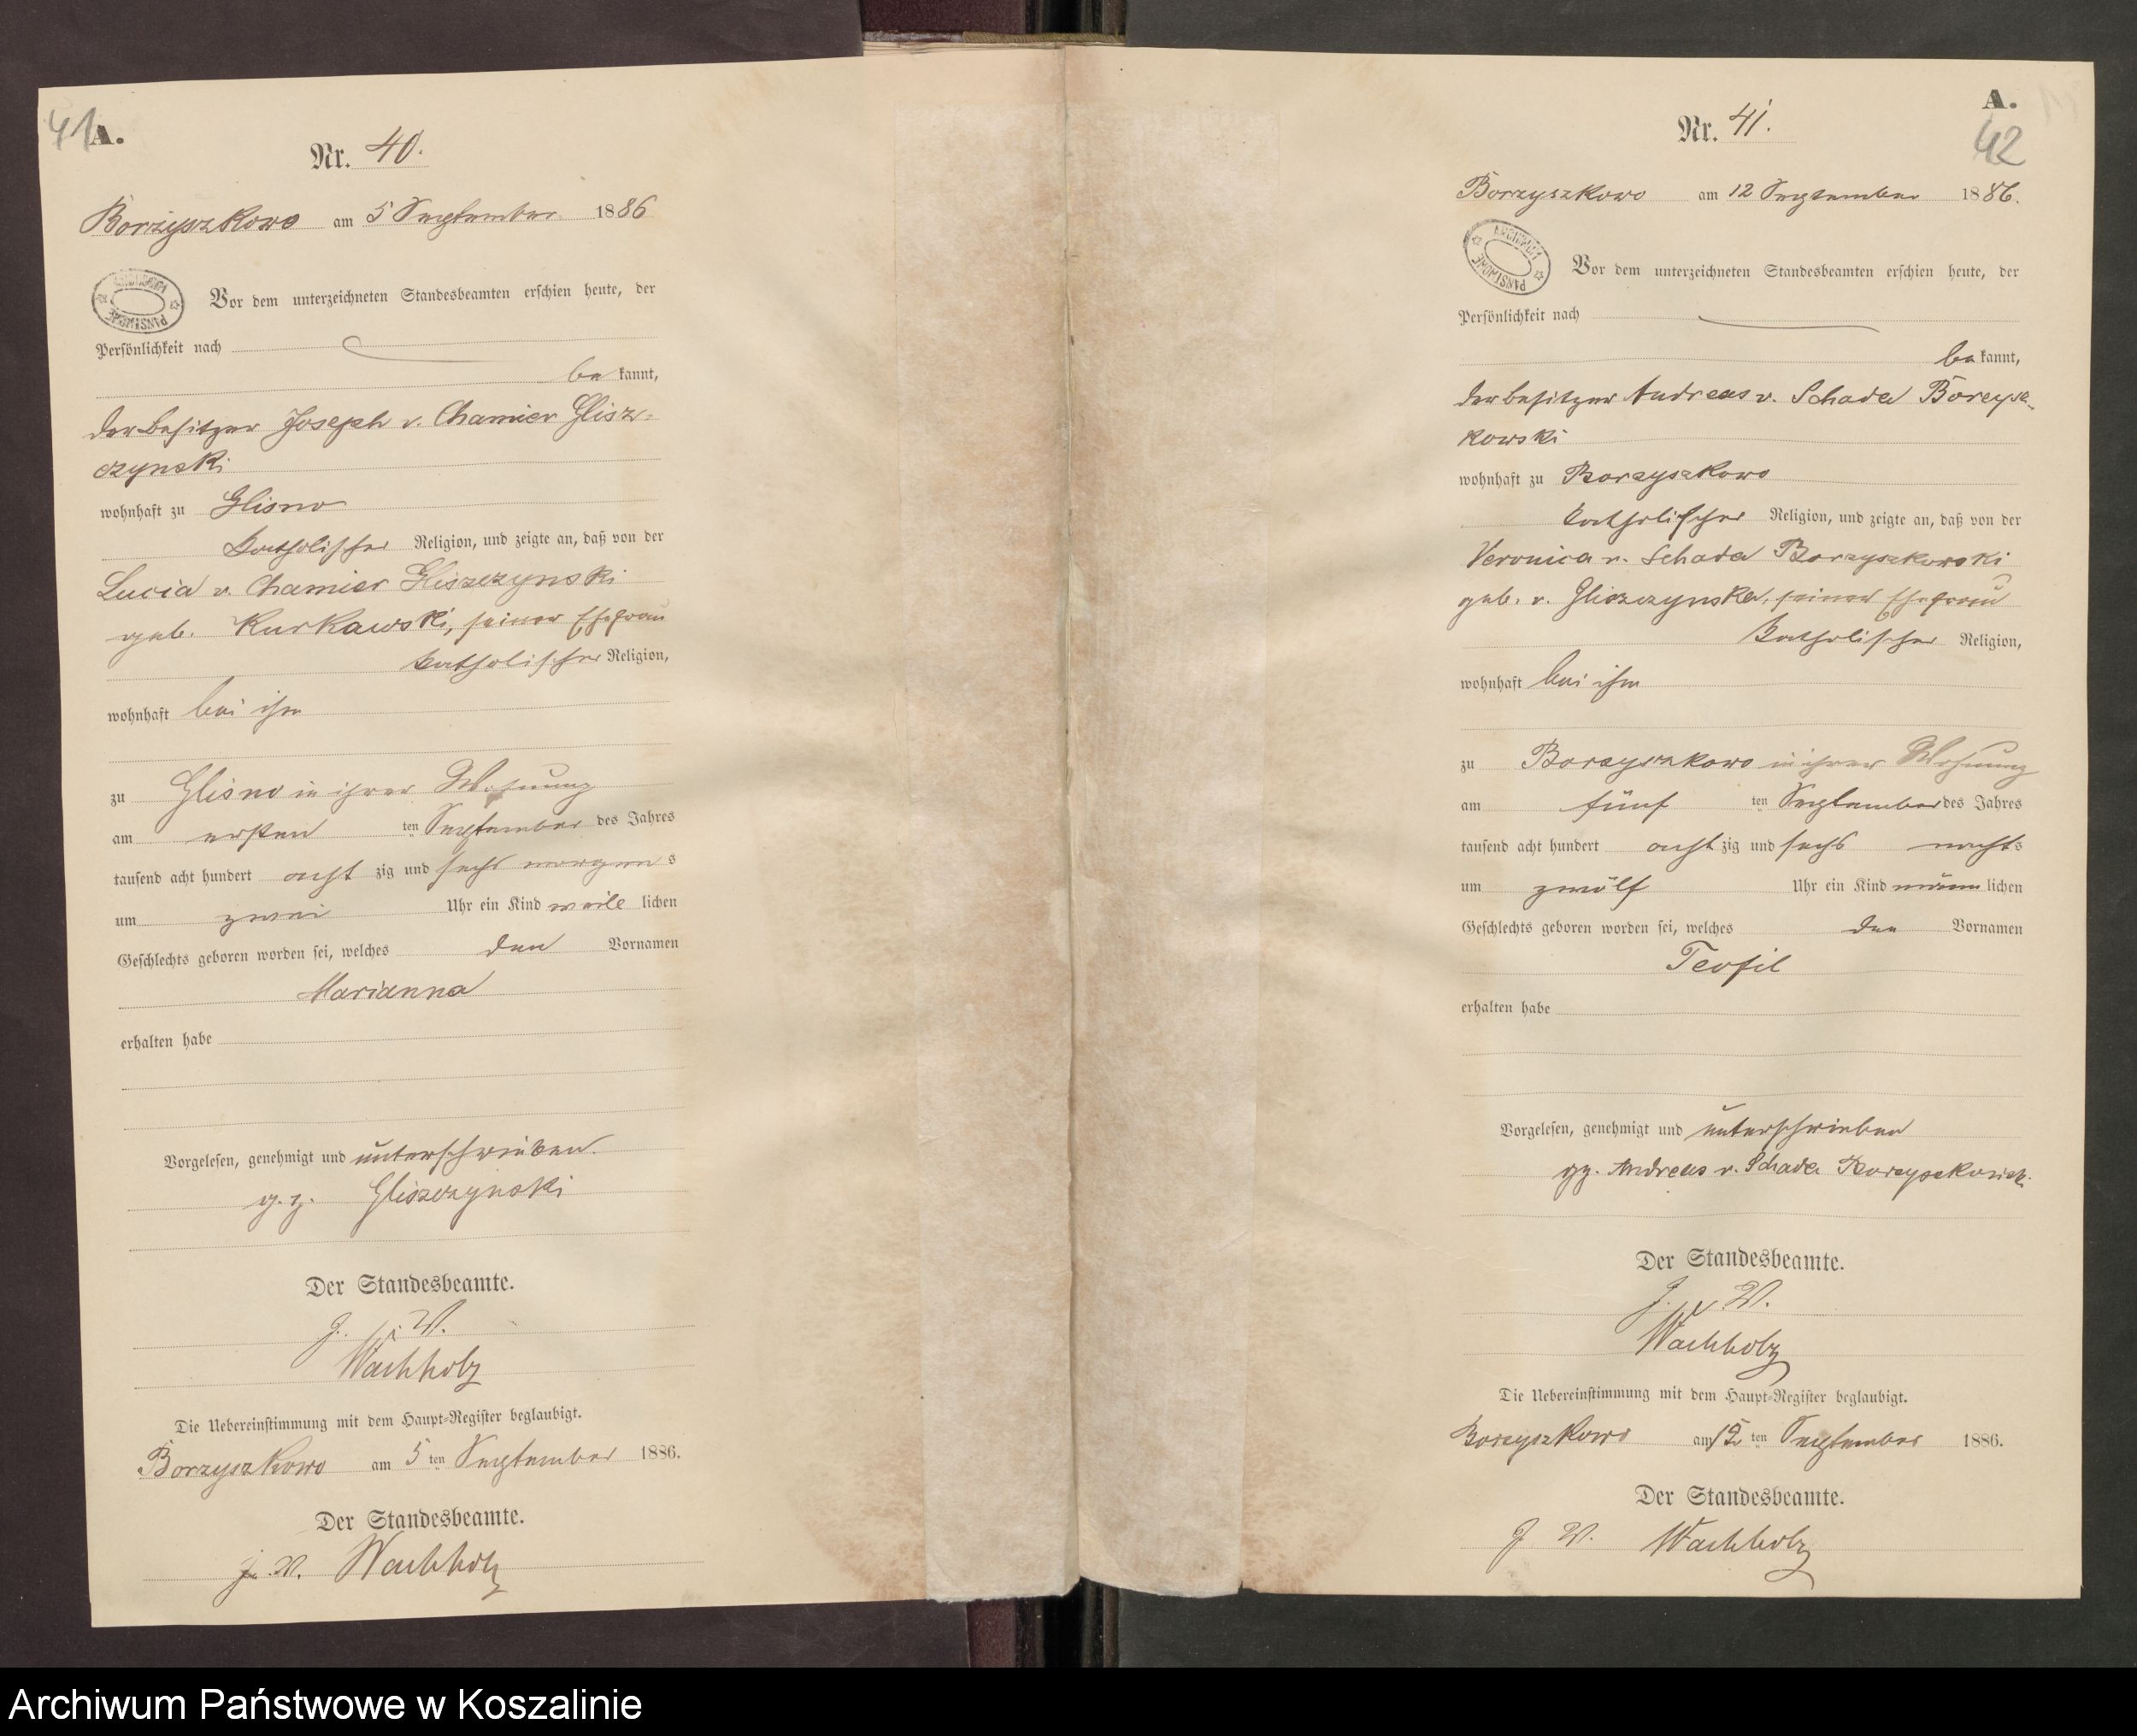 41 A.
Nr. 40.
Borzyszkowo am 5 September 1886
Vor dem unterzeichneten Standesbeamten erschien heute, der
Persönlichkeit nach
be kannt,
der Besitzer Joseph v. Chamier Glisz=
czynski
wohnhaft zu Glisno
katholischer Religion, und zeigte an, daß von der
Lucia v Chamier Gliszczynski
geb. Kurkawski, seiner Ehefrau
katholischer Religion,
wohnhaft bei ihm
zu Glisno in ihrer Wohnung
am ersten ten September des Jahres
tausend acht hundert acht zig und sechs morgen s
um zwei Uhr ein Kind weib lichen
Geschlechts geboren worden sei, welches den Vornamen
Marianna
erhalten habe
Vorgelesen, genehmigt und unterschrieben.
g. z. Gliszczynski
Der Standesbeamte.
J. V.
Wachholz
Die Uebereinstimmung mit dem Haupt=Register beglaubigt.
Borzyszkowo am 5 ten September 1886.
Der Standesbeamte.
J. V. Wachholz
A.
42
Nr. 41.
Borzyszkowo am 12 September 1886.
Vor dem unterzeichneten Standesbeamten erschien heute, der
Persönlichkeit nach
be kannt,
der Besitzer Andreas v. Schada Borzysz-
kowski
wohnhaft zu Borzyszkowo
katholischer Religion, und zeigte an, daß von der
Veronica v. Schada Borzyszkowski
geb. v. Gliszczynska, seiner Ehefrau
katholischer Religion,
wohnhaft bei ihm
zu Borzyszkowo in ihrer Wohnung
am fünf ten September des Jahres
tausend acht hundert acht zig und sechs nachts
um zwölf Uhr ein Kind männ lichen
Geschlechts geboren worden sei, welches den Vornamen
Teofil
erhalten habe
Vorgelesen, genehmigt und unterschrieben
gz. Andreas v. Schada Borzyszkowski.
Der Standesbeamte.
J. V.
Wachholz
Die Uebereinstimmung mit dem Haupt=Register beglaubigt.
Borzyszkowo am 12 ten September 1886.
Der Standesbeamte.
J V. Wachholz
Archiwum Państwowe w Koszalinie